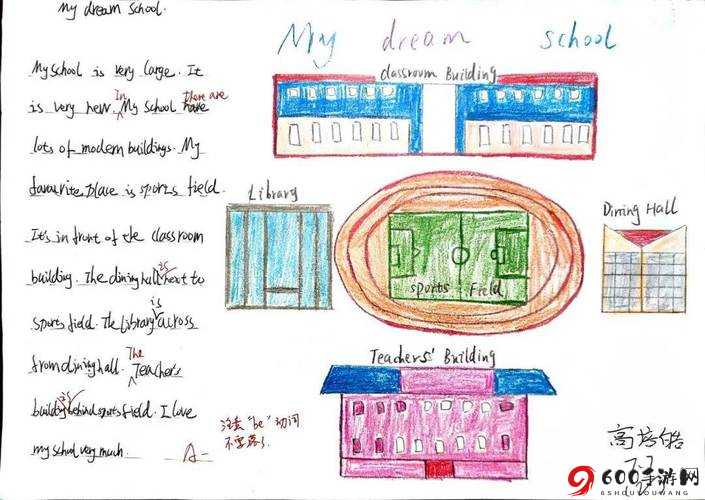 My dream School.
My school is very large. It
is very new. In My school have there are
lots of modern buildings. My
favourite place is sports field.
It's in front of the classroom
building. The dining hall is next to
sports field. The library is across
from dining hall. The Teachers
building is behind sports field. I love
my school very much.
A-
注意 "be" 动词
不要忘了
My dream school
classroom Building
Library
Dining Hall
sports Field
Teachers' Building
600手游网
6SHOUYOUWANG